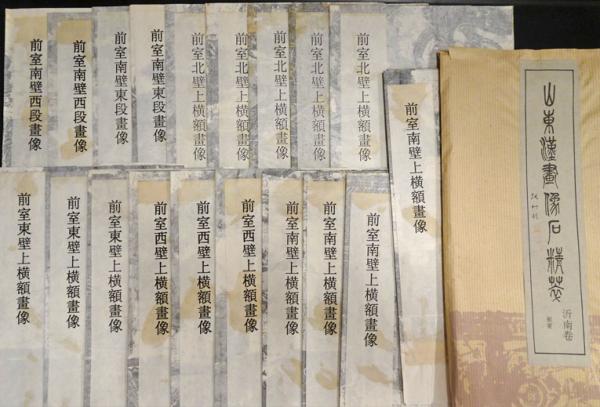 前室南壁西段畫像
前室南壁西段畫像
前室南壁東段畫像
前室南壁東段畫像
前室北壁上橫額畫像
前室北壁上橫額畫像
前室北壁上橫額畫像
前室北壁上橫額畫像
前室北壁上橫額畫像
前室南壁上橫額畫像
前室東壁上橫額畫像
前室東壁上橫額畫像
前室東壁上橫額畫像
前室西壁上橫額畫像
前室西壁上橫額畫像
前室西壁上橫額畫像
前室南壁上橫額畫像
前室南壁上橫額畫像
前室南壁上橫額畫像
山東漢畫像石精萃
沂南卷